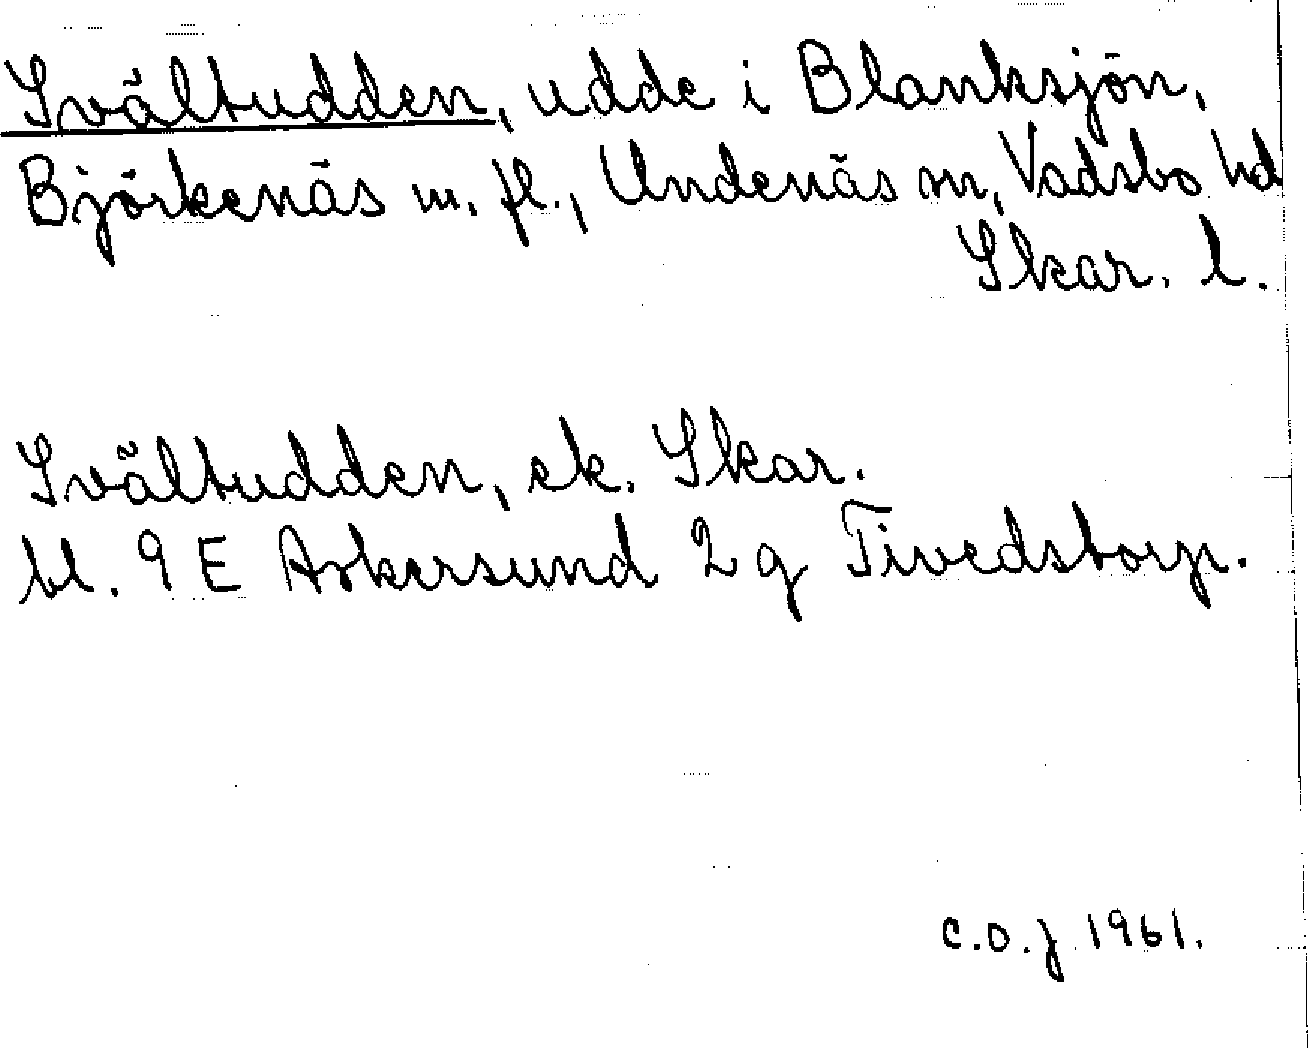 Svältudden, udde i Blanksjön,
Björkenäs m. fl., Undenäs sn, Vadsbo hd
Skar. l.
Svältudden, ek. Skar.
bl. 9 E Askersund 2 g Tivedstorp.
C.O.J 1961.